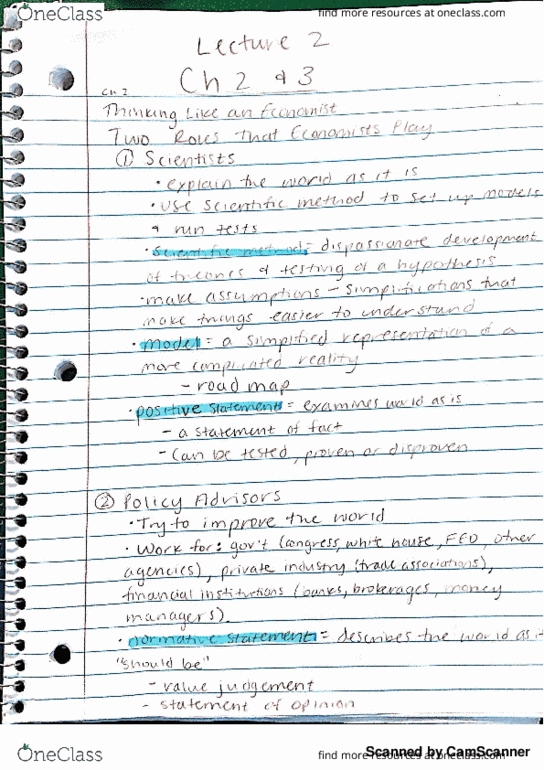 OneClass
find more resources at oneclass.com
Lecture 2
Ch 2 & 3
Ch 2
Thinking Like an Economist
Two Roles that Economists Play
① Scientists
• explain the world as it is
• use scientific method to set up models
& run tests
• scientific method: dispassionate development
of theories & testing of a hypothesis
• make assumptions – simplifications that
make things easier to understand
• model = a simplified representation of a
more complicated reality
– road map
• positive statement = examines world as is
– a statement of fact
– can be tested, proven or disproven
② Policy Advisors
• Try to improve the world
• Work for: gov't (congress, white house, FED, other
agencies), private industry (trade associations),
financial institutions (banks, brokerages, money
managers).
• normative statement = describes the world as it
"should be"
– value judgement
– statement of opinion
OneClass
find more resources at oneclass.com
Scanned by CamScanner